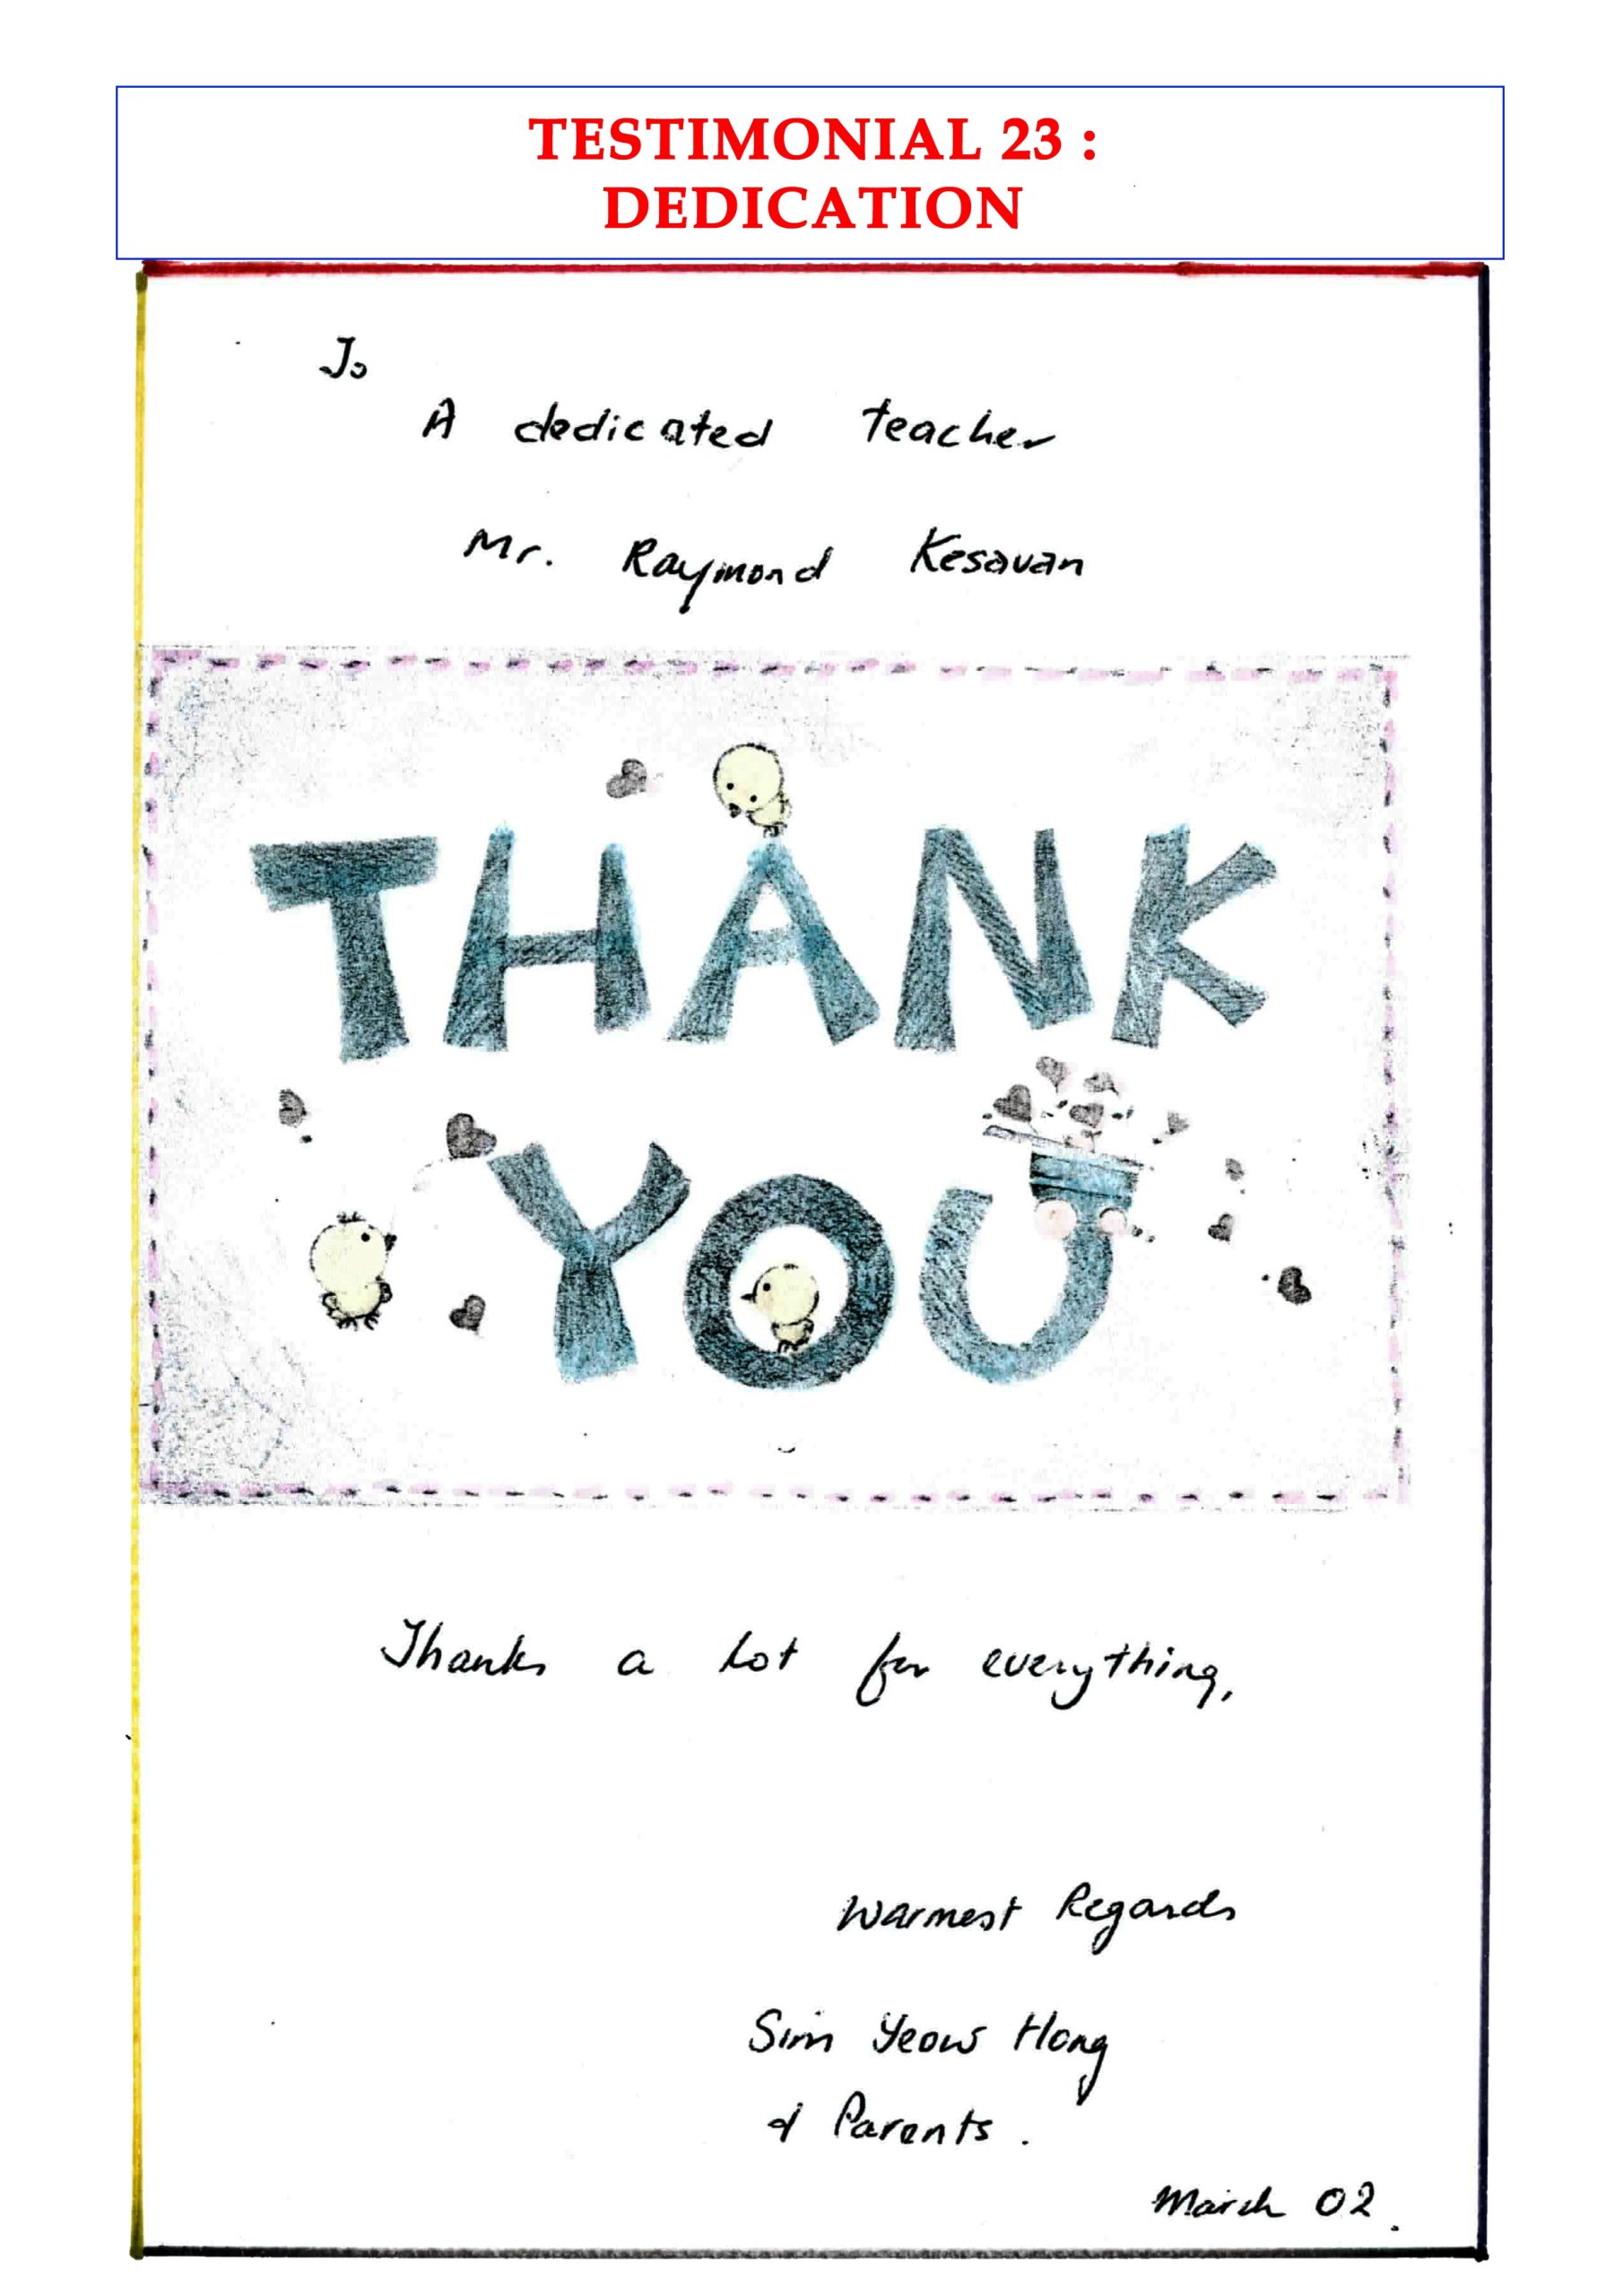 TESTIMONIAL 23 :
DEDICATION
To
A dedicated teacher
Mr. Raymond Kesavan
THANK
YOU
Thanks a lot for everything,
Warmest Regards
Sim Yeow Hong
& Parents.
March 02.